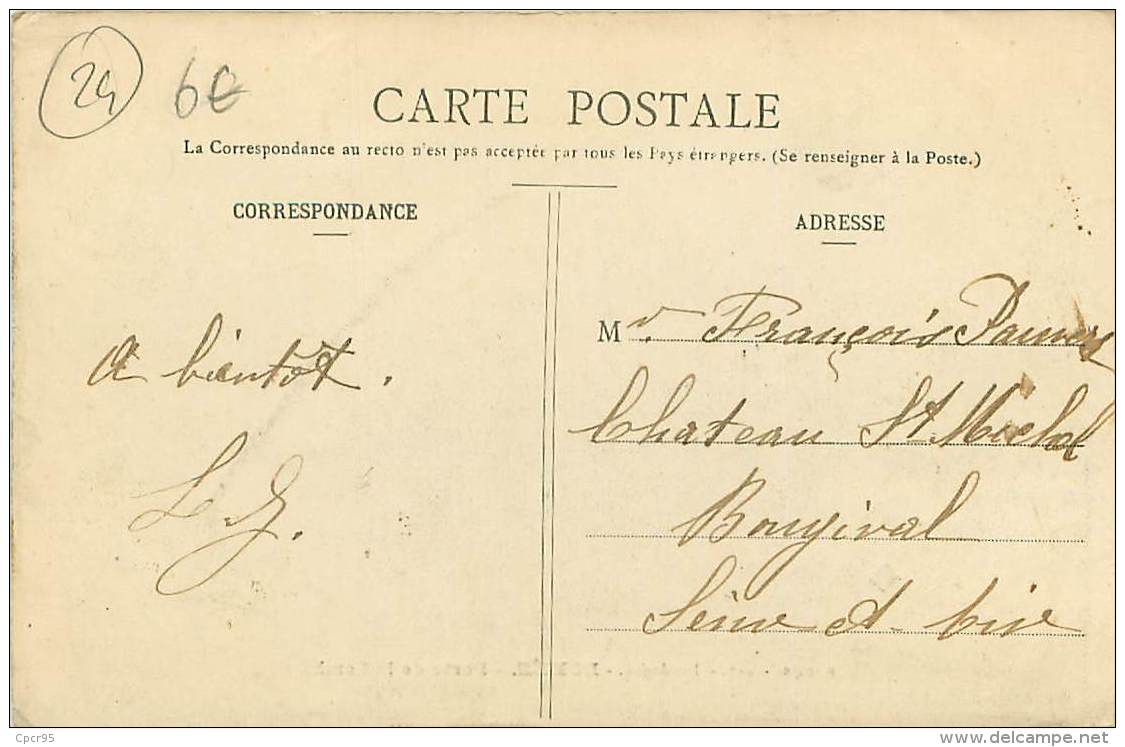 24
6€
CARTE POSTALE
La Correspondance au recto n'est pas acceptée par tous les Pays étrangers. (Se renseigner à la Poste.)
CORRESPONDANCE
ADRESSE
Mr. François
Chateau St Michel
Bougival
Seine et Oise
A bientôt.
L. G.
Cpcr95
www.delcampe.net